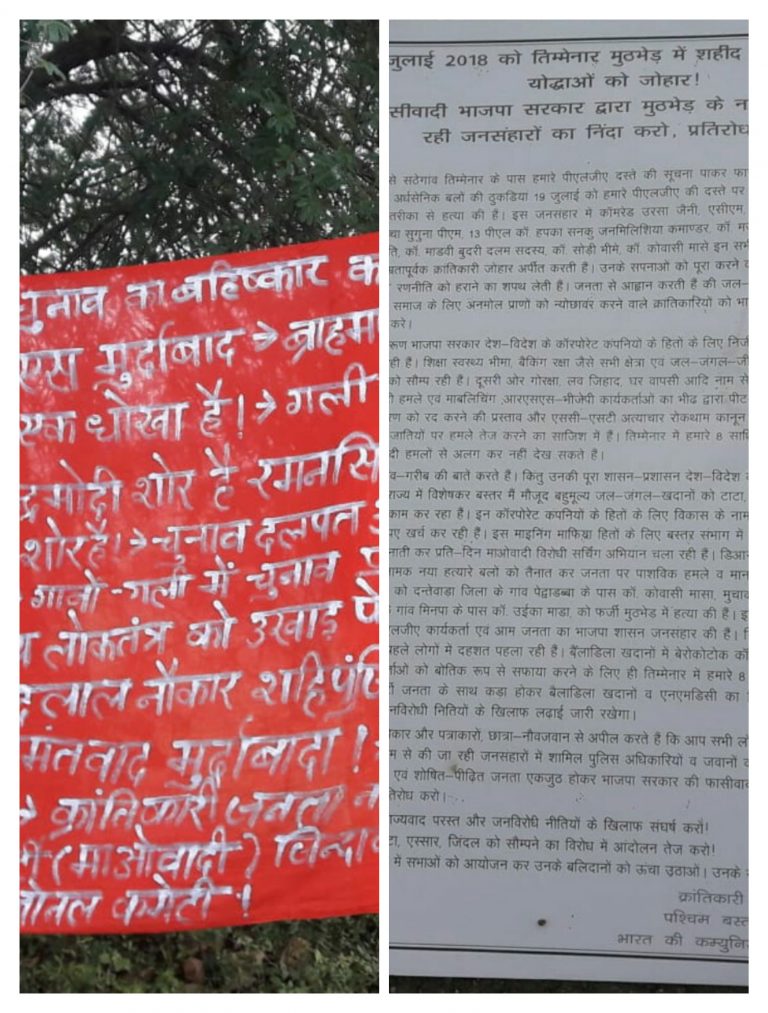 चुनाव का बहिष्कार क
एस मुर्दाबाद → ब्राहम
एक धोखा है! → गली
द्रमोदी शोर है रमनसि
शोरहै! → चुनाव दलपत
गावो-गली में चुनाव
लोकतंत्र को उखाड़ फे
लाल नौकार शहिपुंजि
मंतवाद मुर्दाबादा!
→ क्रांतिकारी जनता न
(माओवादी) जिन्दा
जोनल कमेटी!
जुलाई 2018 को तिम्मेनार मुठभेड़ में शहीद
योद्धाओं को जोहार!
सीवादी भाजपा सरकार द्वारा मुठभेड़ के न
रही जनसंहारों का निंदा करो, प्रतिरोध
से सठेगांव तिम्मेनार के पास हमारे पीएलजीए दस्ते की सूचना पाकर फा
अर्धसेनिक बलों की ठुकडिया 19 जुलाई को हमारे पीएलजीए की दस्ते पर
तरीका से हत्या की हैं। इस जनसंहार में कॉमरेड उरसा जैनी, एसीएम,
था सुगुना पीएम, 13 पीएल कॉ. हपका सनकु जनमिलिशिया कमाण्डर, कॉ. म
ति, कॉ. माडवी बुदरी दलम सदस्य, कॉ. सोड़ी भीमे, कॉ. कोवासी मासे इन सभ
म्रतापूर्वक क्रातिकारी जोहार अर्पीत करती है। उनके सपनाओं को पूरा करने
रणनीति को हराने का शपथ लेती है। जनता से आह्वान करती हैं की जल–
समाज के लिए अनमोल प्राणों को न्योछावर करने वाले क्रांतिकारियों को भा
करे।
रूण भाजपा सरकार देश–विदेश के कॉरपोरेट कंपनियों के हितों के लिए निर्ज
ही हैं। शिक्षा स्वास्थ्य भीमा, बैंकिग रक्षा जैसे सभी क्षेत्रा एवं जल–जंगल–जी
को सौम्प रही हैं। दूसरी ओर गोरक्षा, लव जिहाद, घर वापसी आदि नाम से
हमले एवं माबलिचिंग आरएसएस–भीजेपी कार्यकर्ताओं का भीढ द्वारा पीट
ण को रद करने की प्रस्ताव और एससी–एसटी अत्याचार रोकथाम कानून
जातियों पर हमले तेज करने का साजिश में हैं। तिम्मेनार में हमारे 8 साथि
दी हमलों से अलग कर नहीं देख सकते हैं।
व–गरीब की बाते करते हैं। किंतु उनकी पूरा शासन–प्रशासन देश–विदेश
राज्य में विशेषकर बस्तर मैं मौजूद बहुमूल्य जल–जंगल–खदानों को टाटा,
काम कर रहा है। इन कॉरपोरेट कंपनियों के हितों के लिए विकास के नाम
ए खर्च कर रही हैं। इस माइनिंग माफिया हितों के लिए बस्तर सभाग में
नाती कर प्रति–दिन माओवादी विरोधी सर्चिंग अभियान चला रही हैं। डिआर
नामक नया हत्यारे बलों को तैनात कर जनता पर पाशविक हमले व मान
को दन्तेवाड़ा जिला के गाव पेद्दाडब्बा के पास कॉ. कोवासी मासा, मुचा
गांव मिनपा के पास कॉ. उईका माडा, को फर्जी मुठभेड़ में हत्या की हैं। इ
लजीए कार्यकर्ता एवं आम जनता का भाजपा शासन जनसंहार की हैं।
पहले लोगों में दहशत पहला रही है। बैलाडिला खदानों में बेरोकोटोक कॉ
र्ताओं को बोतिक रूप से सफाया करने के लिए ही तिम्मेनार में हमारे 8
जनता के साथ कड़ा होकर बैलाडिला खदानों व एनएमडिसी का
जनविरोधी नितियों के खिलाफ लढ़ाई जारी रखेगा।
कार और पत्राकारों, छात्रा–नौवजवान से अपील करते हैं कि आप सभी लो
म से की जा रही जनसंहारों में शामिल पुलिस अधिकारियों व जवानों क
एवं शोषित–पीढ़ित जनता एकजुठ होकर भाजपा सरकार की फासीवाद
तिरोध करो।
राज्यवाद परस्त और जनविरोधी नीतियों के खिलाफ संघर्ष करो!
टा, एस्सार, जिंदल को सौम्पने का विरोध में आंदोलन तेज करो!
में सभाओं को आयोजन कर उनके बलिदानों को ऊंचा उठाओं। उनके
क्रांतिकारी
पश्चिम बस्त
भारत की कम्युनि